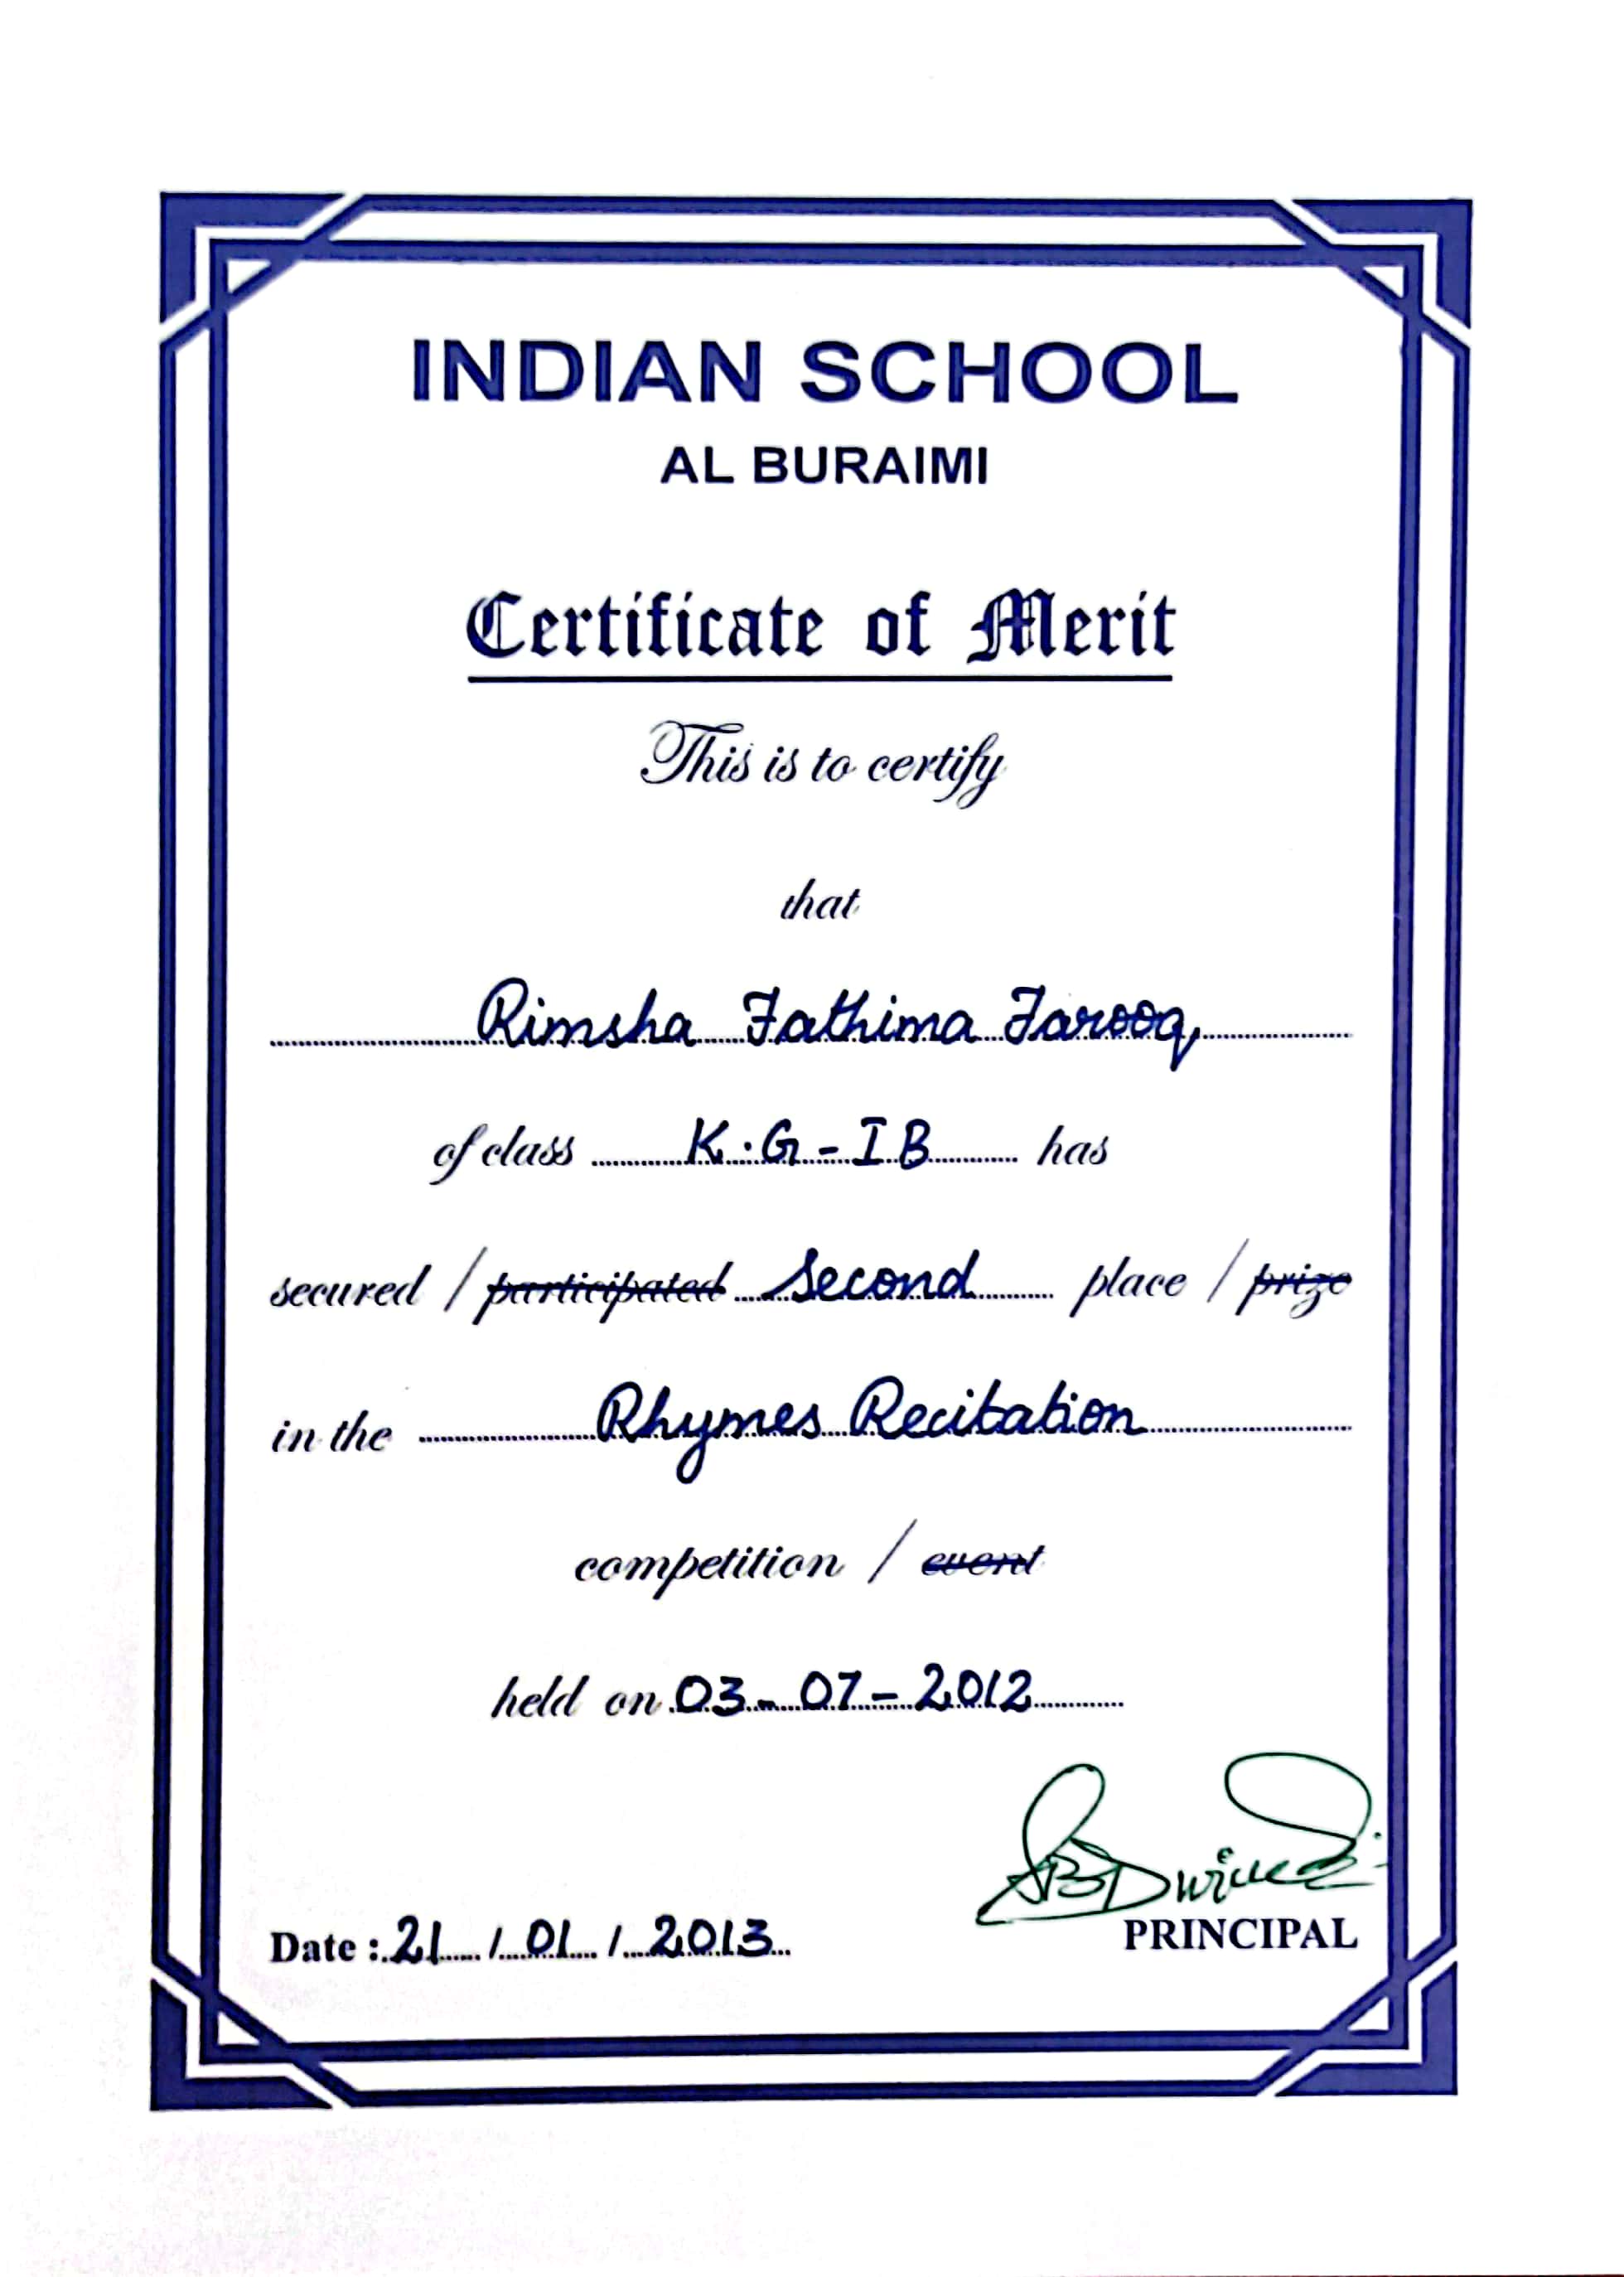 INDIAN SCHOOL
AL BURAIMI
Certificate of Merit
This is to certify
that
Rimsha Fathima Farooq
of class K.G - I B has
secured / participated Second place / prize
in the Rhymes Recitation
competition / event
held on 03 - 07 - 2012
PRINCIPAL
Date : 21 / 01 / 2013